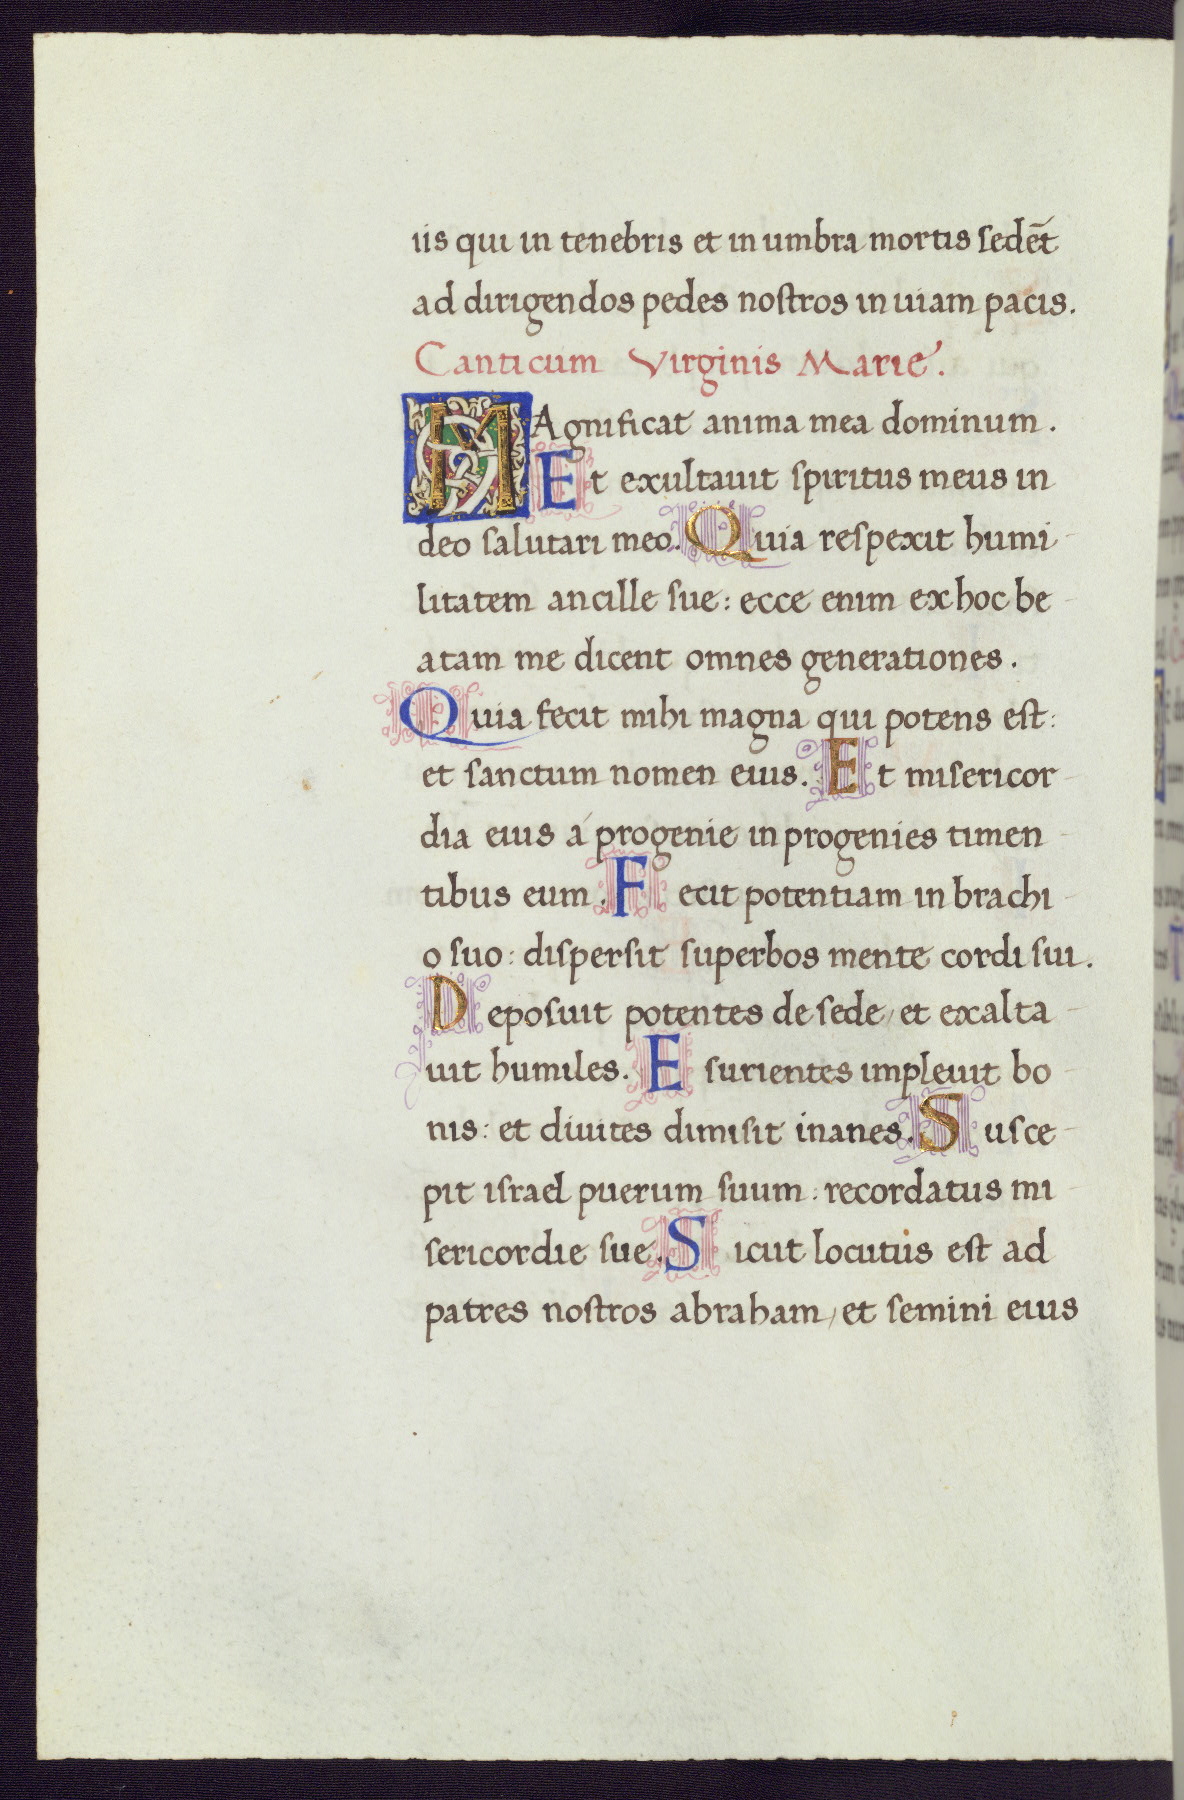 iis qui in tenebris et in umbra mortis sedēt
ad dirigendos pedes nostros in uiam pacis.
Canticum Virginis Marie.
MAgnificat anima mea dominum.
Et exultauit spiritus meus in
deo salutari meo. Quia respexit humi-
litatem ancille sue: ecce enim ex hoc be-
atam me dicent omnes generationes.
Quia fecit mihi magna qui potens est:
et sanctum nomen eius. Et misericor-
dia eius á progenie in progenies timen-
tibus eum. Fecit potentiam in brachi-
o suo: dispersit superbos mente cordi sui.
Deposuit potentes de sede, et exalta-
uit humiles. Esurientes impleuit bo-
nis: et diuites dimisit inanes. Susce-
pit israel puerum suum: recordatus mi-
sericordie sue. Sicut locutus est ad
patres nostros abraham, et semini eius